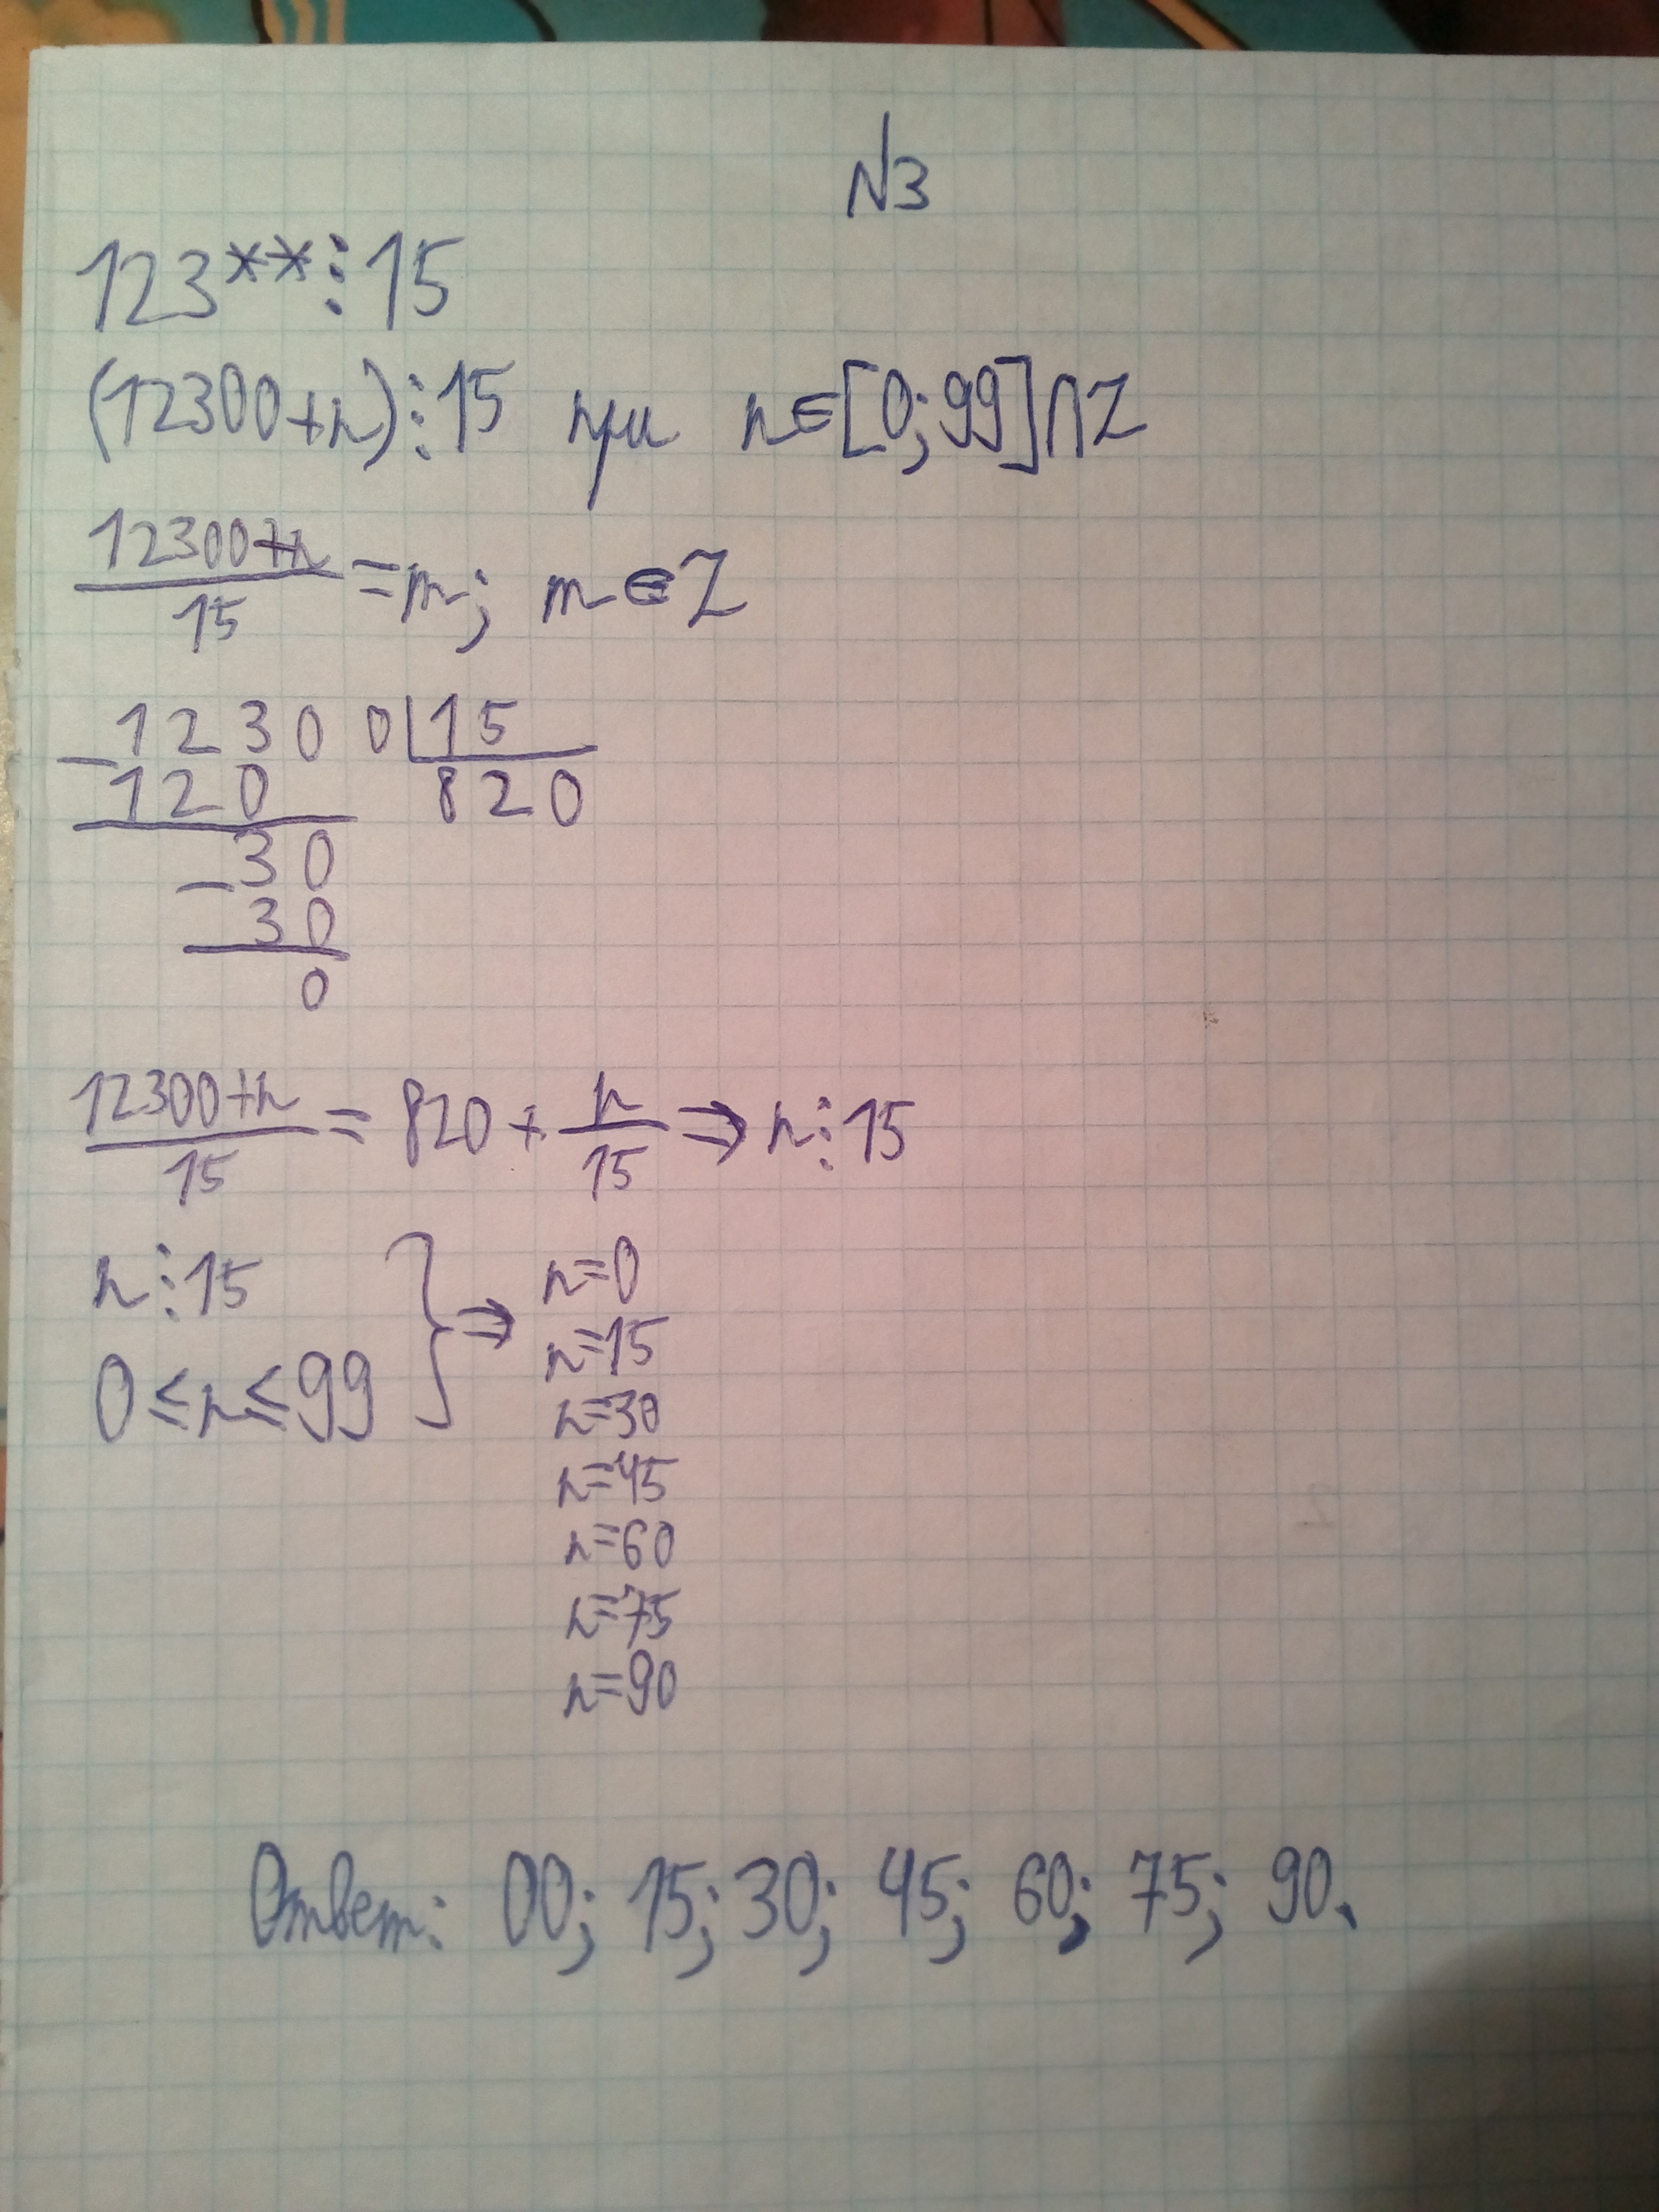 №3
123**⋮15
(12300+n)⋮15 при n∈[0;99]∩Z
12300+n
15
=m; m∈Z
12300|15
−120 820
−30
30
0
12300+n/15 = 820 + n/15 ⇒ n⋮15
n⋮15
0≤n≤99
} ⇒ n=0
n=15
n=30
n=45
n=60
n=75
n=90
Ответ: 00; 15; 30; 45; 60; 75; 90.